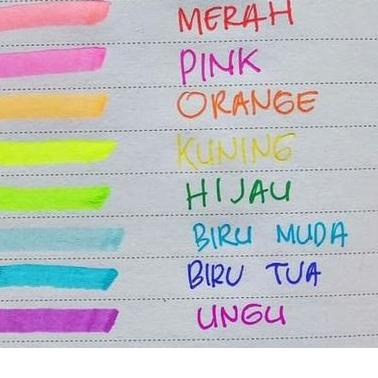 MERAH
PINK
ORANGE
KUNING
HIJAU
BIRU MUDA
BIRU TUA
UNGU